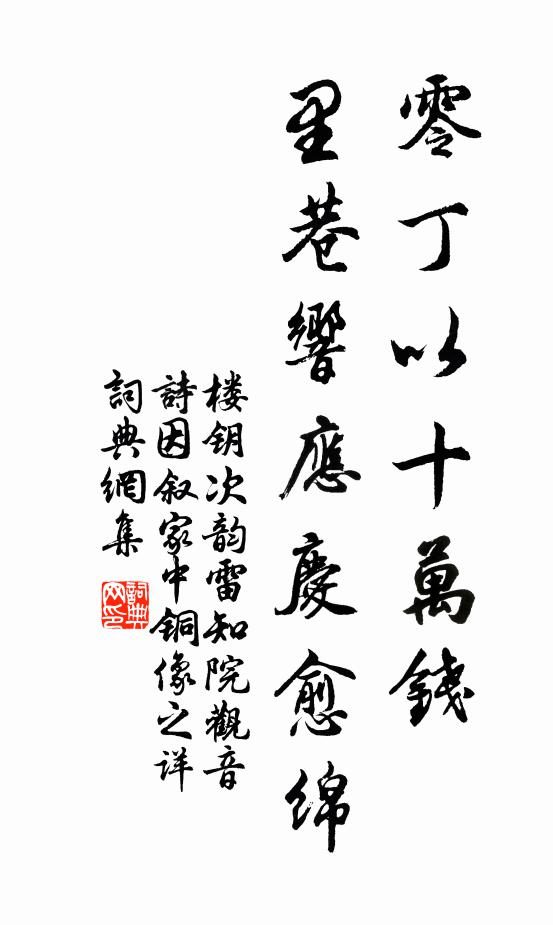 零丁以十萬錢
里巷響應慶愈綿
楼钥次韵雷知院觀音
詩因叙家中铜像之详
詞典網集
詞典網印